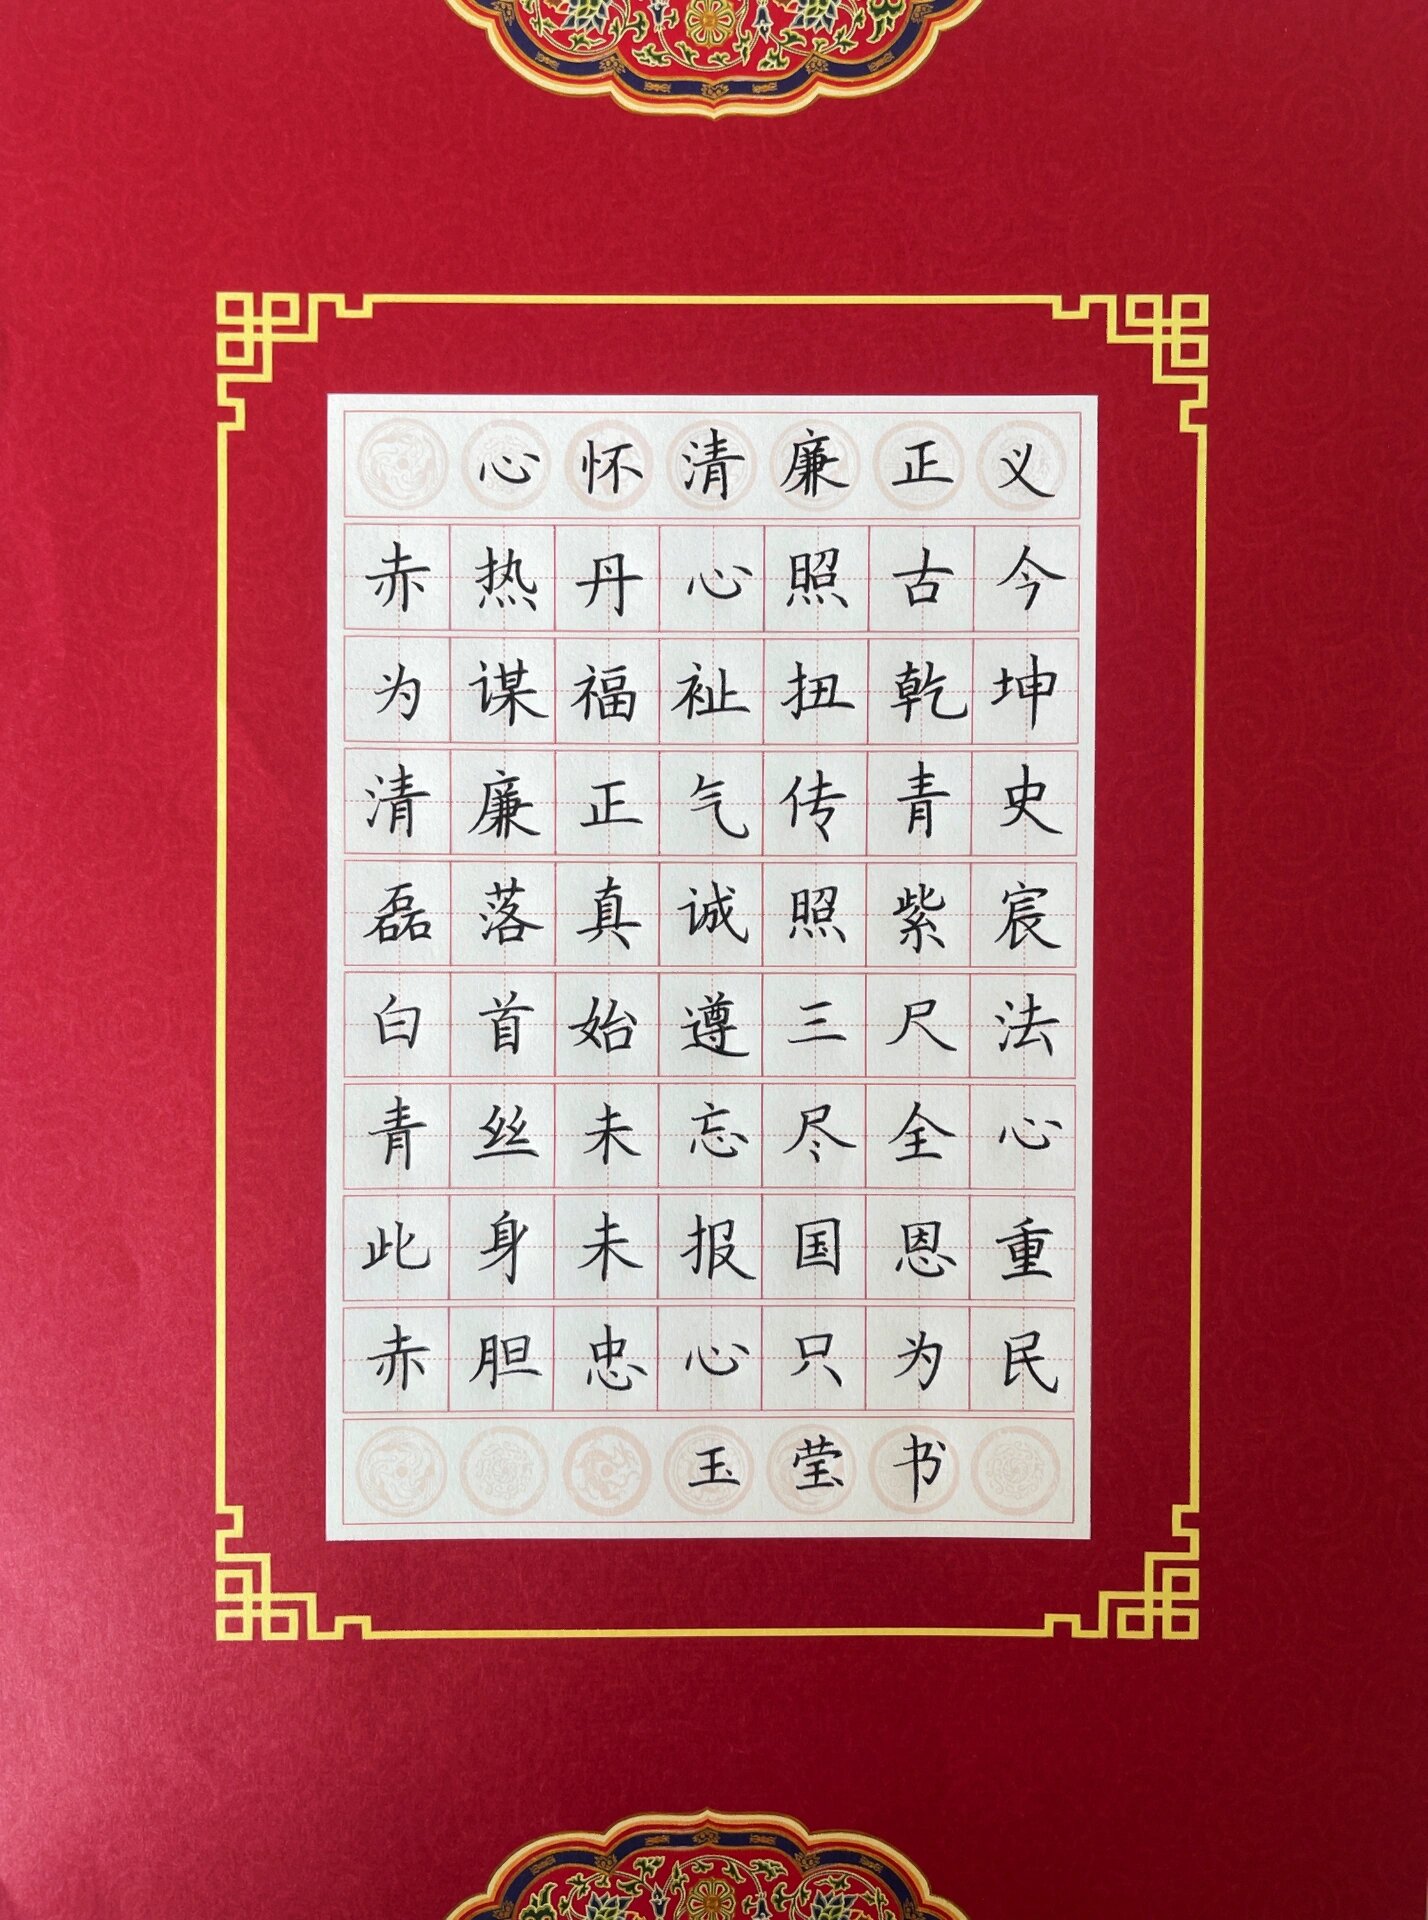 心怀清廉正义
赤热丹心照古今
为谋福祉扭乾坤
清廉正气传青史
磊落真诚照紫宸
白首始遵三尺法
青丝未忘尽全心
此身未报国恩重
赤胆忠心只为民
玉莹书